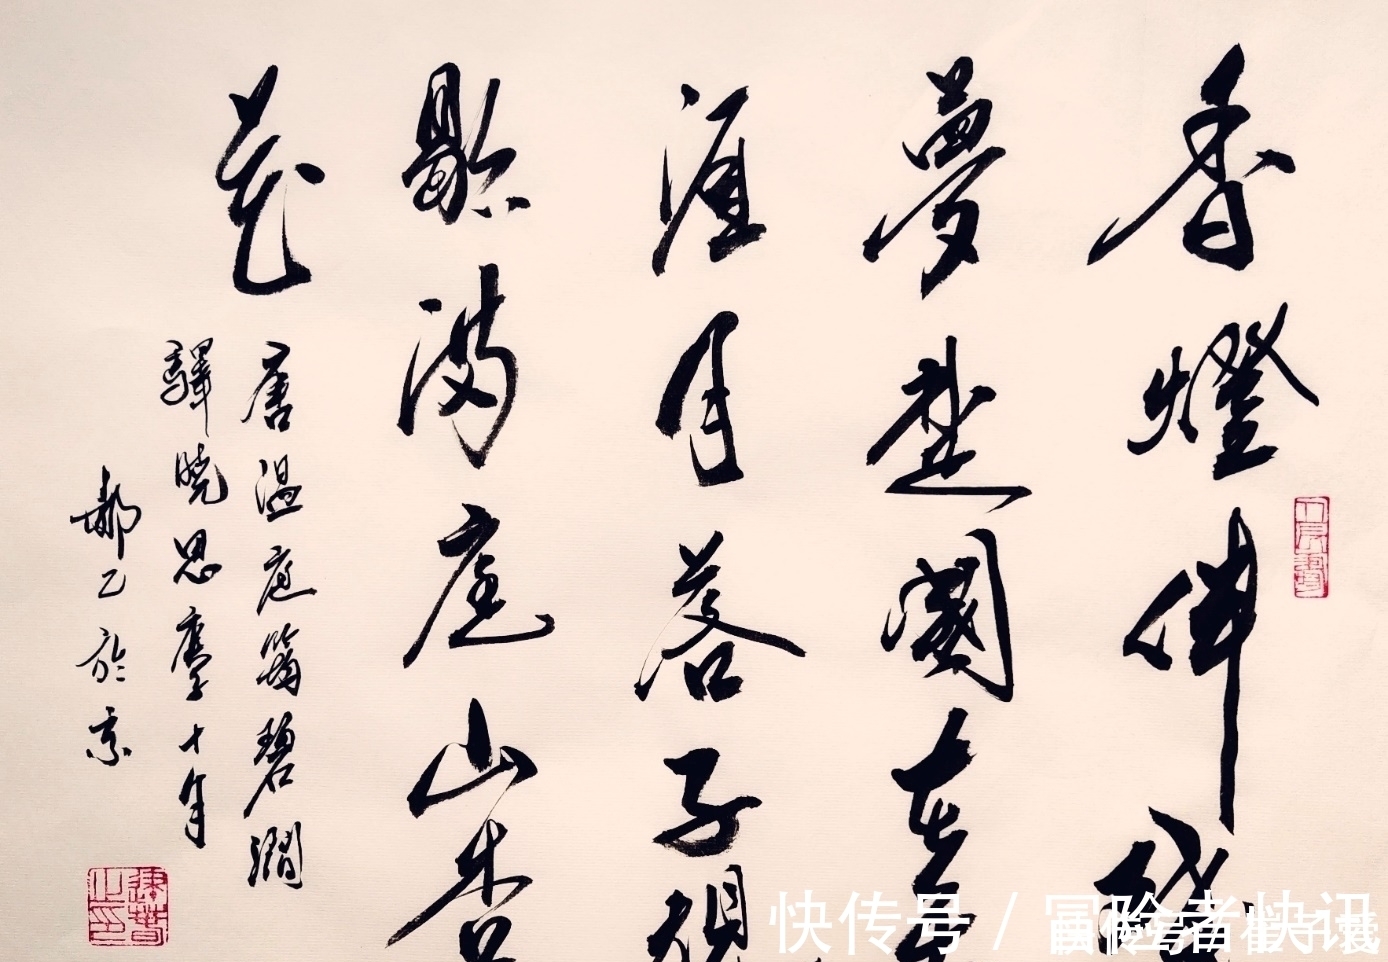 香燈伴殘
夢楚國在天
涯月落子規
歇滿庭山杏
花
唐温庭筠碧澗
驛晓思 十年
於京
快传号 / 冒险者快讯